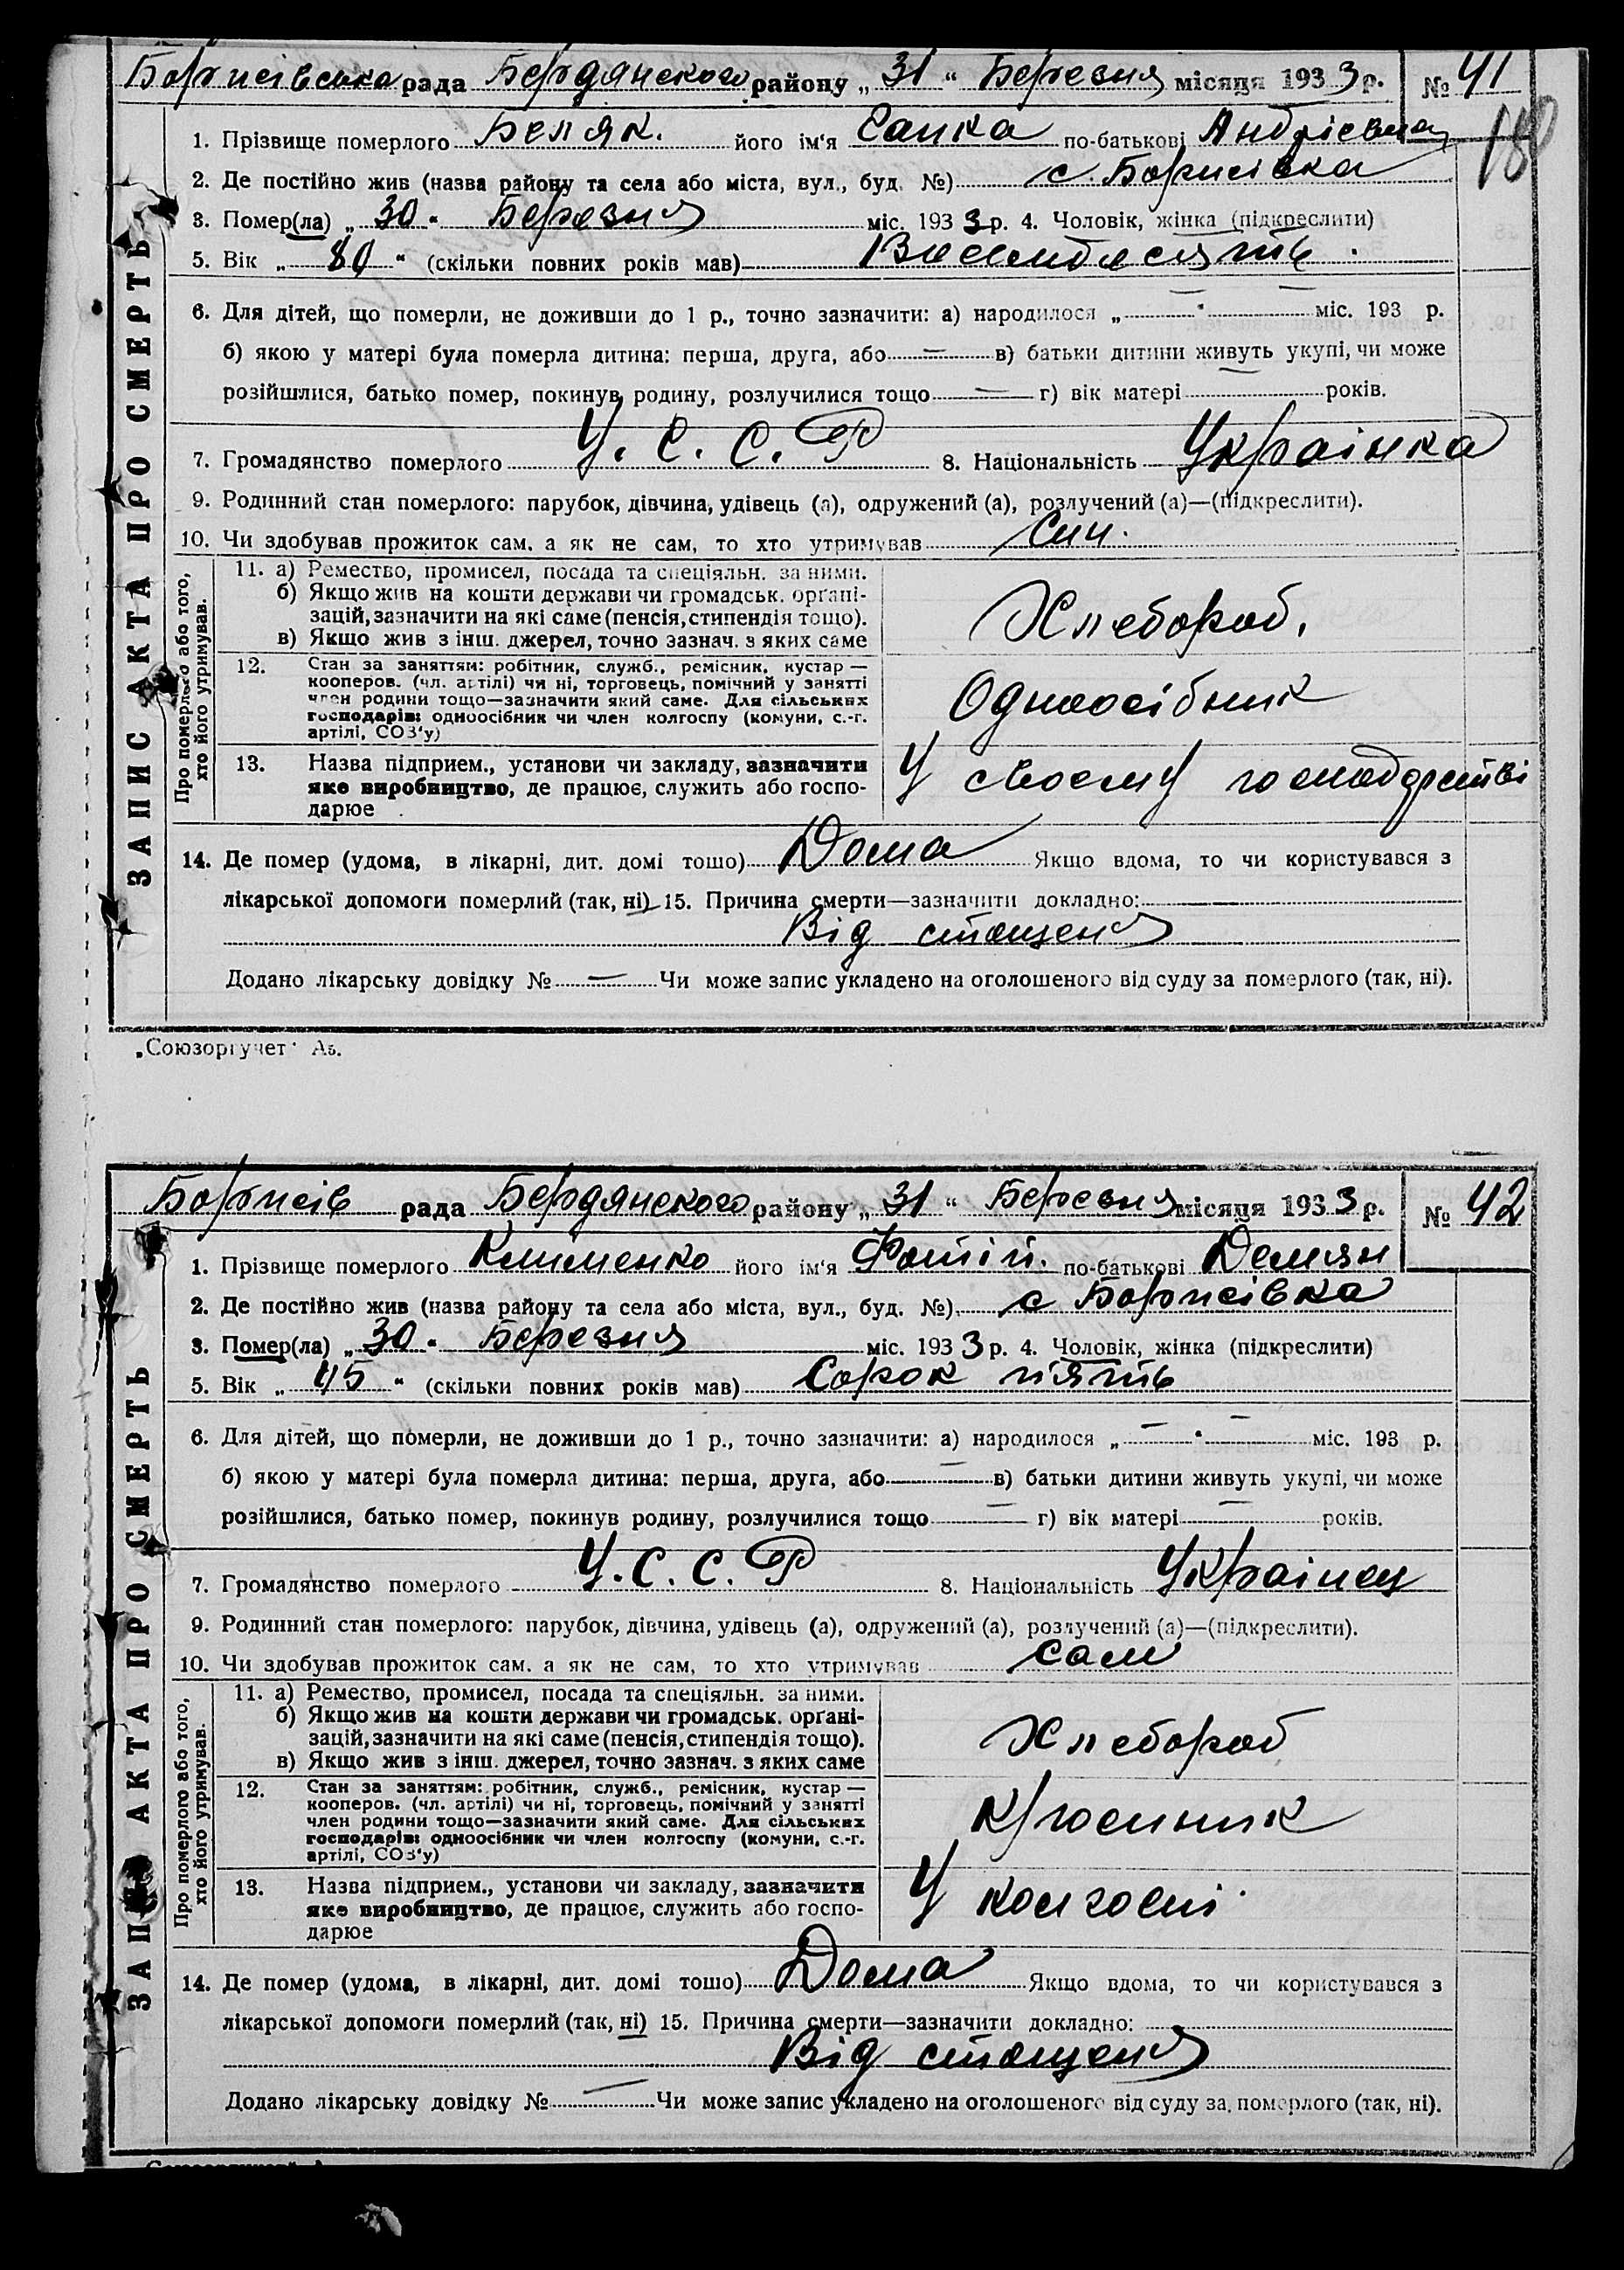 Борисівська рада Бердянского району „ 31 “ Березня місяця 193 3 р. № 41
180
1. Прізвище померлого Беляк. його ім'я Санка по-батькові Андрієвна
2. Де постійно жив (назва району та села або міста, вул., буд. №) с. Борисівка
3. Помер(ла) „ 30 “ Березня міс. 193 3 р. 4. Чоловік, жінка (підкреслити)
5. Вік „ 80 “ (скільки повних років мав) Восемдесять
6. Для дітей, що померли, не доживши до 1 р., точно зазначити: а) народилося „ — “ — міс. 193 р.
б) якою у матері була померла дитина: перша, друга, або — в) батьки дитини живуть укупі, чи може
розійшлися, батько помер, покинув родину, розлучилися тощо — г) вік матері — років.
7. Громадянство померлого У. С. С. Р 8. Національність Украінка
9. Родинний стан померлого: парубок, дівчина, удівець (а), одружений (а), розлучений (а)—(підкреслити).
10. Чи здобував прожиток сам, а як не сам, то хто утримував Син.
ЗАПИС АКТА ПРО СМЕРТЬ
Про померлого або того, хто його утримував.
11. а) Ремество, промисел, посада та спеціяльн. за ними.
б) Якщо жив на кошти держави чи громадськ. орґані-
зацій, зазначити на які саме (пенсія, стипендія тощо).
в) Якщо жив з інш. джерел, точно зазнач. з яких саме
Хлебороб.
12. Стан за заняттям: робітник, служб., ремісник, кустар —
кооперов. (чл. артілі) чи ні, торговець, помічний у занятті
член родини тощо—зазначити який саме. Для сільських
господарів: одноосібник чи член колгоспу (комуни, с.-г.
артілі, СОЗ'у)
Одноосібник
13. Назва підприєм., установи чи закладу, зазначити
яке виробництво, де працює, служить або госпо-
дарює
У своему господарстві
14. Де помер (удома, в лікарні, дит. домі тощо) Дома Якщо вдома, то чи користувався з
лікарської допомоги померлий (так, ні) 15. Причина смерти—зазначити докладно:
Від стощеня
Додано лікарську довідку № — Чи може запис укладено на оголошеного від суду за померлого (так, ні).
„Союзоргучет“ Аз.
Борисів рада Бердянского району „ 31 “ Березня місяця 193 3 р. № 42
1. Прізвище померлого Клименко його ім'я Фотій. по-батькові Демян
2. Де постійно жив (назва району та села або міста, вул., буд. №) с Борисівка
3. Помер(ла) „ 30 “ Березня міс. 193 3 р. 4. Чоловік, жінка (підкреслити)
5. Вік „ 45 “ (скільки повних років мав) Сорок пять
6. Для дітей, що померли, не доживши до 1 р., точно зазначити: а) народилося „ — “ — міс. 193 р.
б) якою у матері була померла дитина: перша, друга, або — в) батьки дитини живуть укупі, чи може
розійшлися, батько помер, покинув родину, розлучилися тощо — г) вік матері — років.
7. Громадянство померлого У. С. С. Р 8. Національність Украінец
9. Родинний стан померлого: парубок, дівчина, удівець (а), одружений (а), розлучений (а)—(підкреслити).
10. Чи здобував прожиток сам, а як не сам, то хто утримував сам
ЗАПИС АКТА ПРО СМЕРТЬ
Про померлого або того, хто його утримував.
11. а) Ремество, промисел, посада та спеціяльн. за ними.
б) Якщо жив на кошти держави чи громадськ. орґані-
зацій, зазначити на які саме (пенсія, стипендія тощо).
в) Якщо жив з інш. джерел, точно зазнач. з яких саме
Хлебороб
12. Стан за заняттям: робітник, служб., ремісник, кустар —
кооперов. (чл. артілі) чи ні, торговець, помічний у занятті
член родини тощо—зазначити який саме. Для сільських
господарів: одноосібник чи член колгоспу (комуни, с.-г.
артілі, СОЗ'у)
13. Назва підприєм., установи чи закладу, зазначити
яке виробництво, де працює, служить або госпо-
дарює
У колгоспі
14. Де помер (удома, в лікарні, дит. домі тощо) Дома Якщо вдома, то чи користувався з
лікарської допомоги померлий (так, ні) 15. Причина смерти—зазначити докладно:
Від стощеня
Додано лікарську довідку № — Чи може запис укладено на оголошеного від суду за померлого (так, ні).